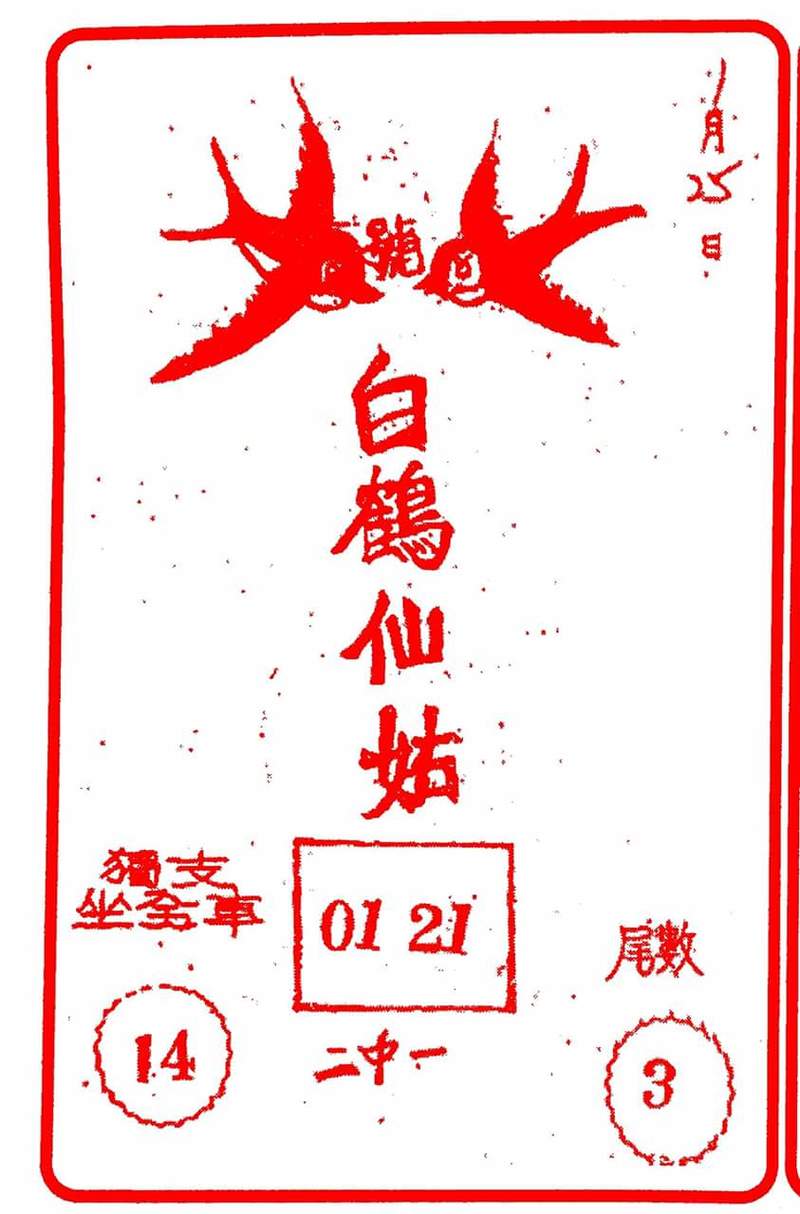 1月25日
號
白鶴仙姑
獨支
坐全車
01 21
尾數
14
二中一
3